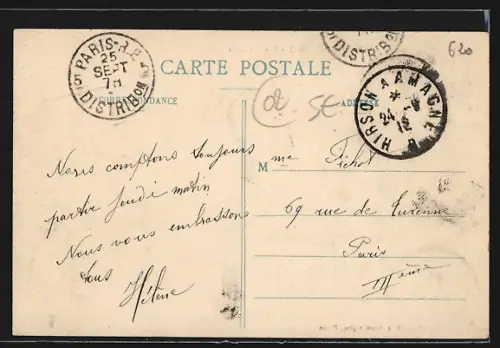 PARIS R.P.
25
SEPT
7H
5 DISTRIBON
DISTRIBON
620
CARTE POSTALE
CORRESPONDANCE
ADRESSE
HIRSON A AMAGNE
24 - 9
12
Nous comptons toujours
partir jeudi matin
Nous vous embrassons
tous
Hélène
M me Pichot
69 rue de Turenne
Paris
IIIème